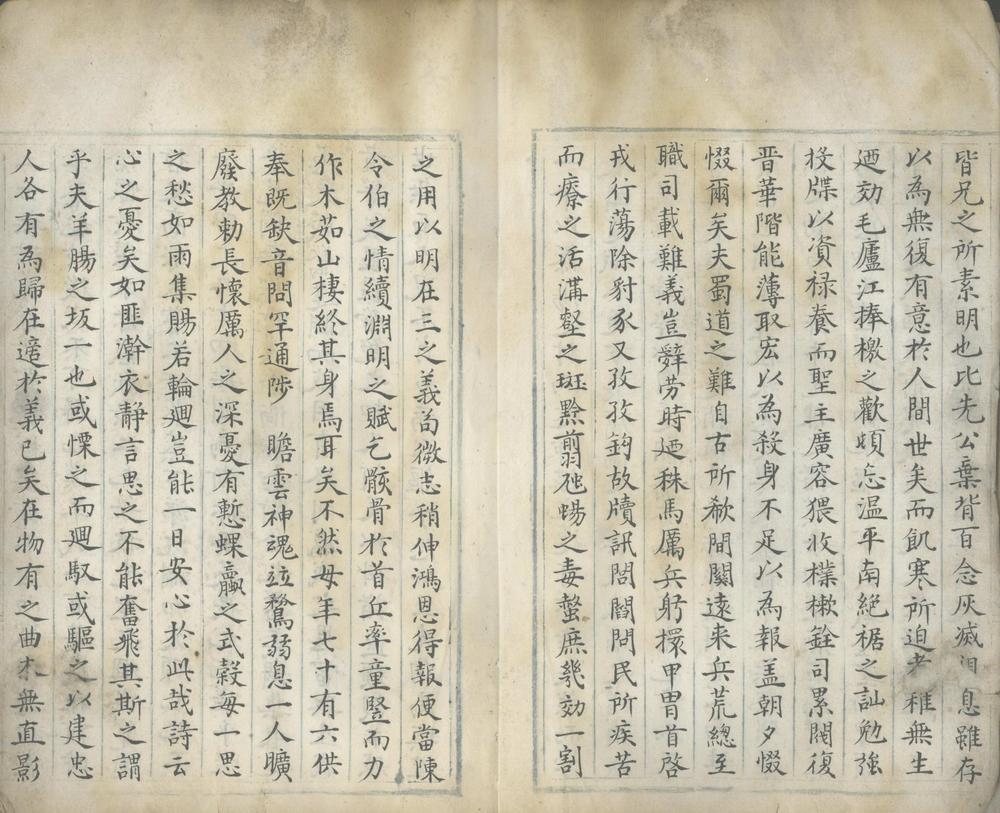 皆兄之所素明也比先公棄背百念灰滅泪息雖存
以為無復有意於人間世矣而飢寒所迫老稚無生
迺効毛廬江捧檄之歡頓忘溫平南絶裾之訕勉強
投牒以資禄養而聖主廣容猥收樸樕銓司累閱復
晉華階能薄取宏以為殺身不足以為報盖朝夕惙
惙爾矣夫蜀道之難自古所欷間關遠来兵荒總至
職司載難義豈辤劳時迺秣馬厲兵躬擐甲冑首啓
戎行蕩除豺豕又孜孜鈞故牘訊閭閻問民所疾苦
而療之活溝壑之斑黔翦虺蜴之毒螫庶幾効一割
之用以明在三之義苟微志稍伸鴻恩得報便當陳
令伯之情續淵明之賦乞骸骨於首丘率童豎而力
作木茹山棲終其身焉耳矣不然母年七十有六供
奉既缺音問罕通陟 瞻雲神魂竝騖弱息一人曠
廢教勅長懷厲人之深憂有慙蜾蠃之式糓每一思
之愁如雨集腸若輪迴豈能一日安心於此哉詩云
心之憂矣如匪澣衣靜言思之不能奮飛其斯之謂
乎夫羊腸之坂一也或慄之而迴馭或驅之以建忠
人各有為歸在適於義已矣在物有之曲木無直影